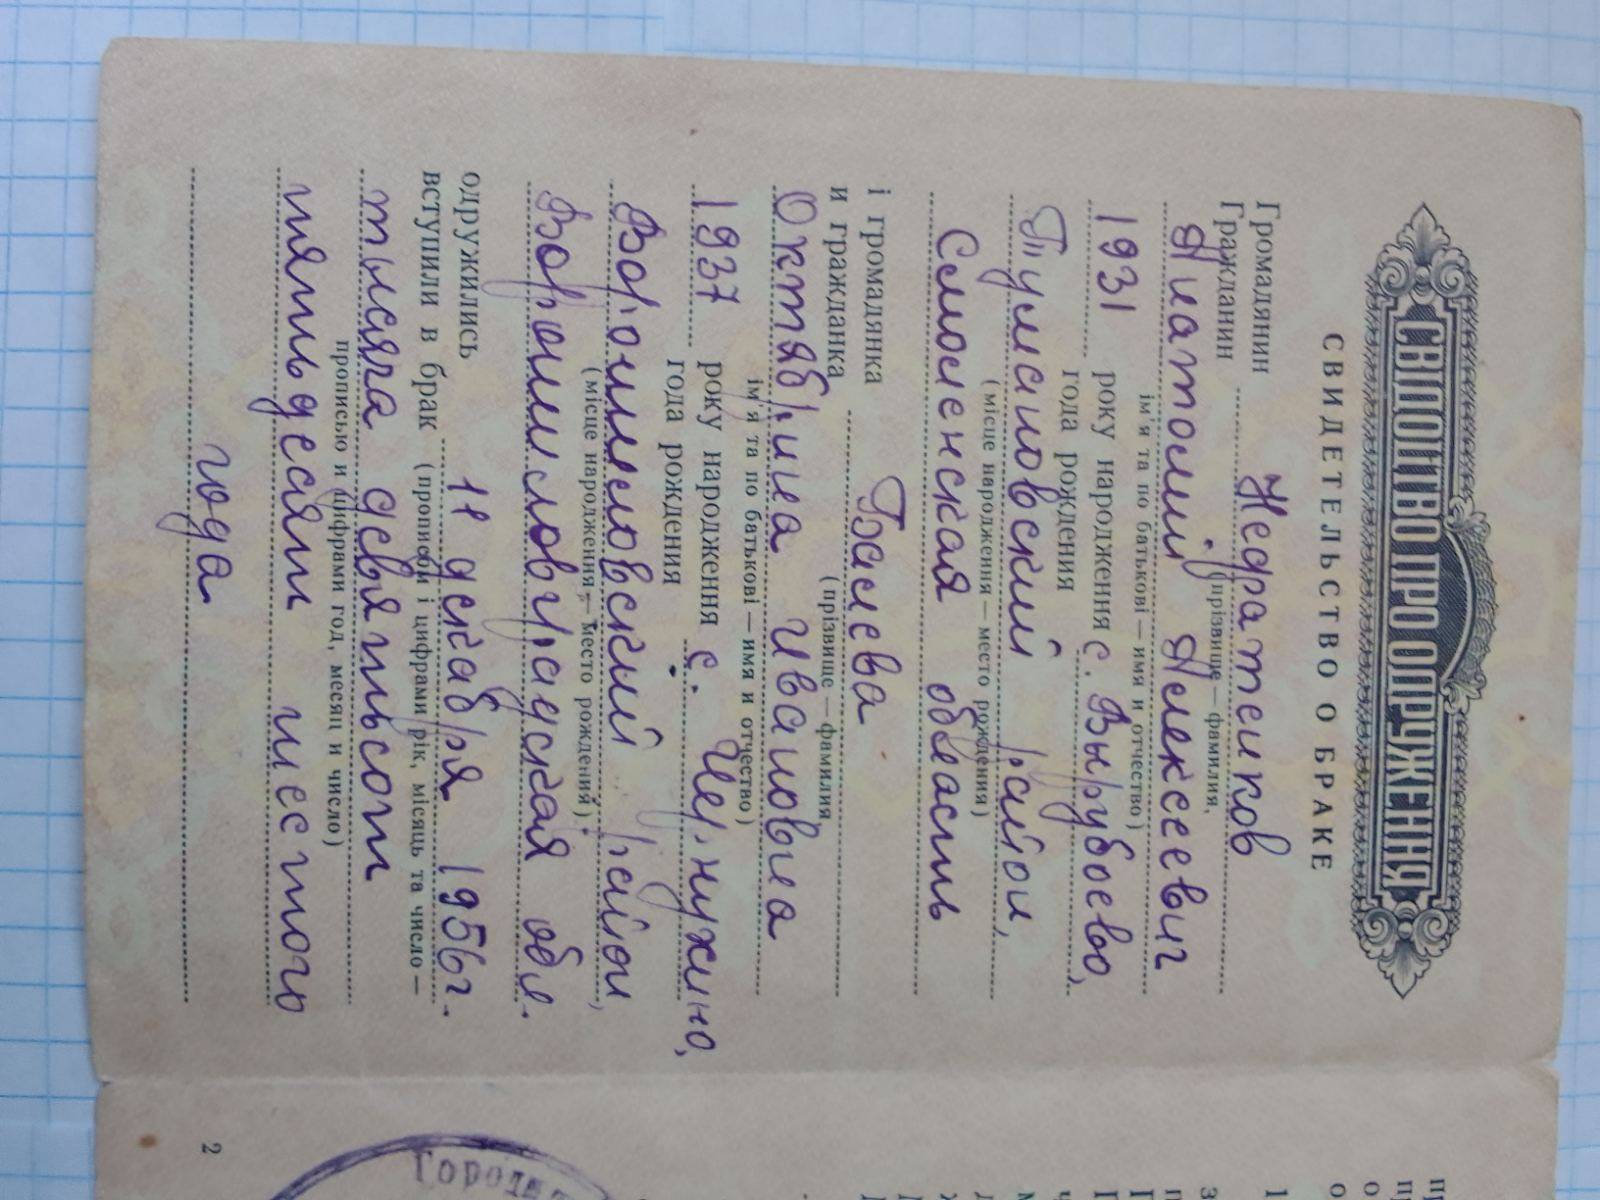 СВІДОЦТВО ПРО ОДРУЖЕННЯ
СВИДЕТЕЛЬСТВО О БРАКЕ
Громадянин
Гражданин Недратенков
(прізвище — фамилия,
Анатолий Алексеевич
ім'я та по батькові — имя и отчество)
1931 року народження с. Вырубоево,
года рождения
Тумановский район,
(місце народження — место рождения)
Смоленская область
і громадянка
и гражданка Балева
(прізвище — фамилия,
Октябрина Ивановна
ім'я та по батькові — имя и отчество)
1937 року народження с. Чернухино,
года рождения
Ворошиловский район,
(місце народження — место рождения)
Ворошиловградская обл.
одружились
вступили в брак 11 декабря 1956г.
(прописом і цифрами рік, місяць та число —
тысяча девятьсот
прописью и цифрами год, месяц и число)
пятьдесят шестого
года
2